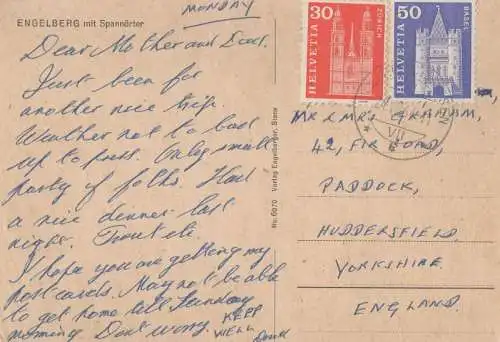 MONDAY
ENGELBERG mit Spannörter
Dear Mother and Dad.
Just been for
another nice trip.
Weather not to bad
up to press. Only small
party of folks. Had
a nice dinner last
night. Trout etc.
I hope you are getting my
post cards. May not be able
to get home till Sunday
morning. Dont worry. KEPP
WELL
No. 6970 Verlag Engelberger, Stans
30
HELVETIA
ZÜRICH
50
HELVETIA
BASEL
VII
MR & MRS GRAHAM,
42, FIR ROAD,
PADDOCK,
HUDDERSFIELD.
YORKSHIRE.
ENGLAND.